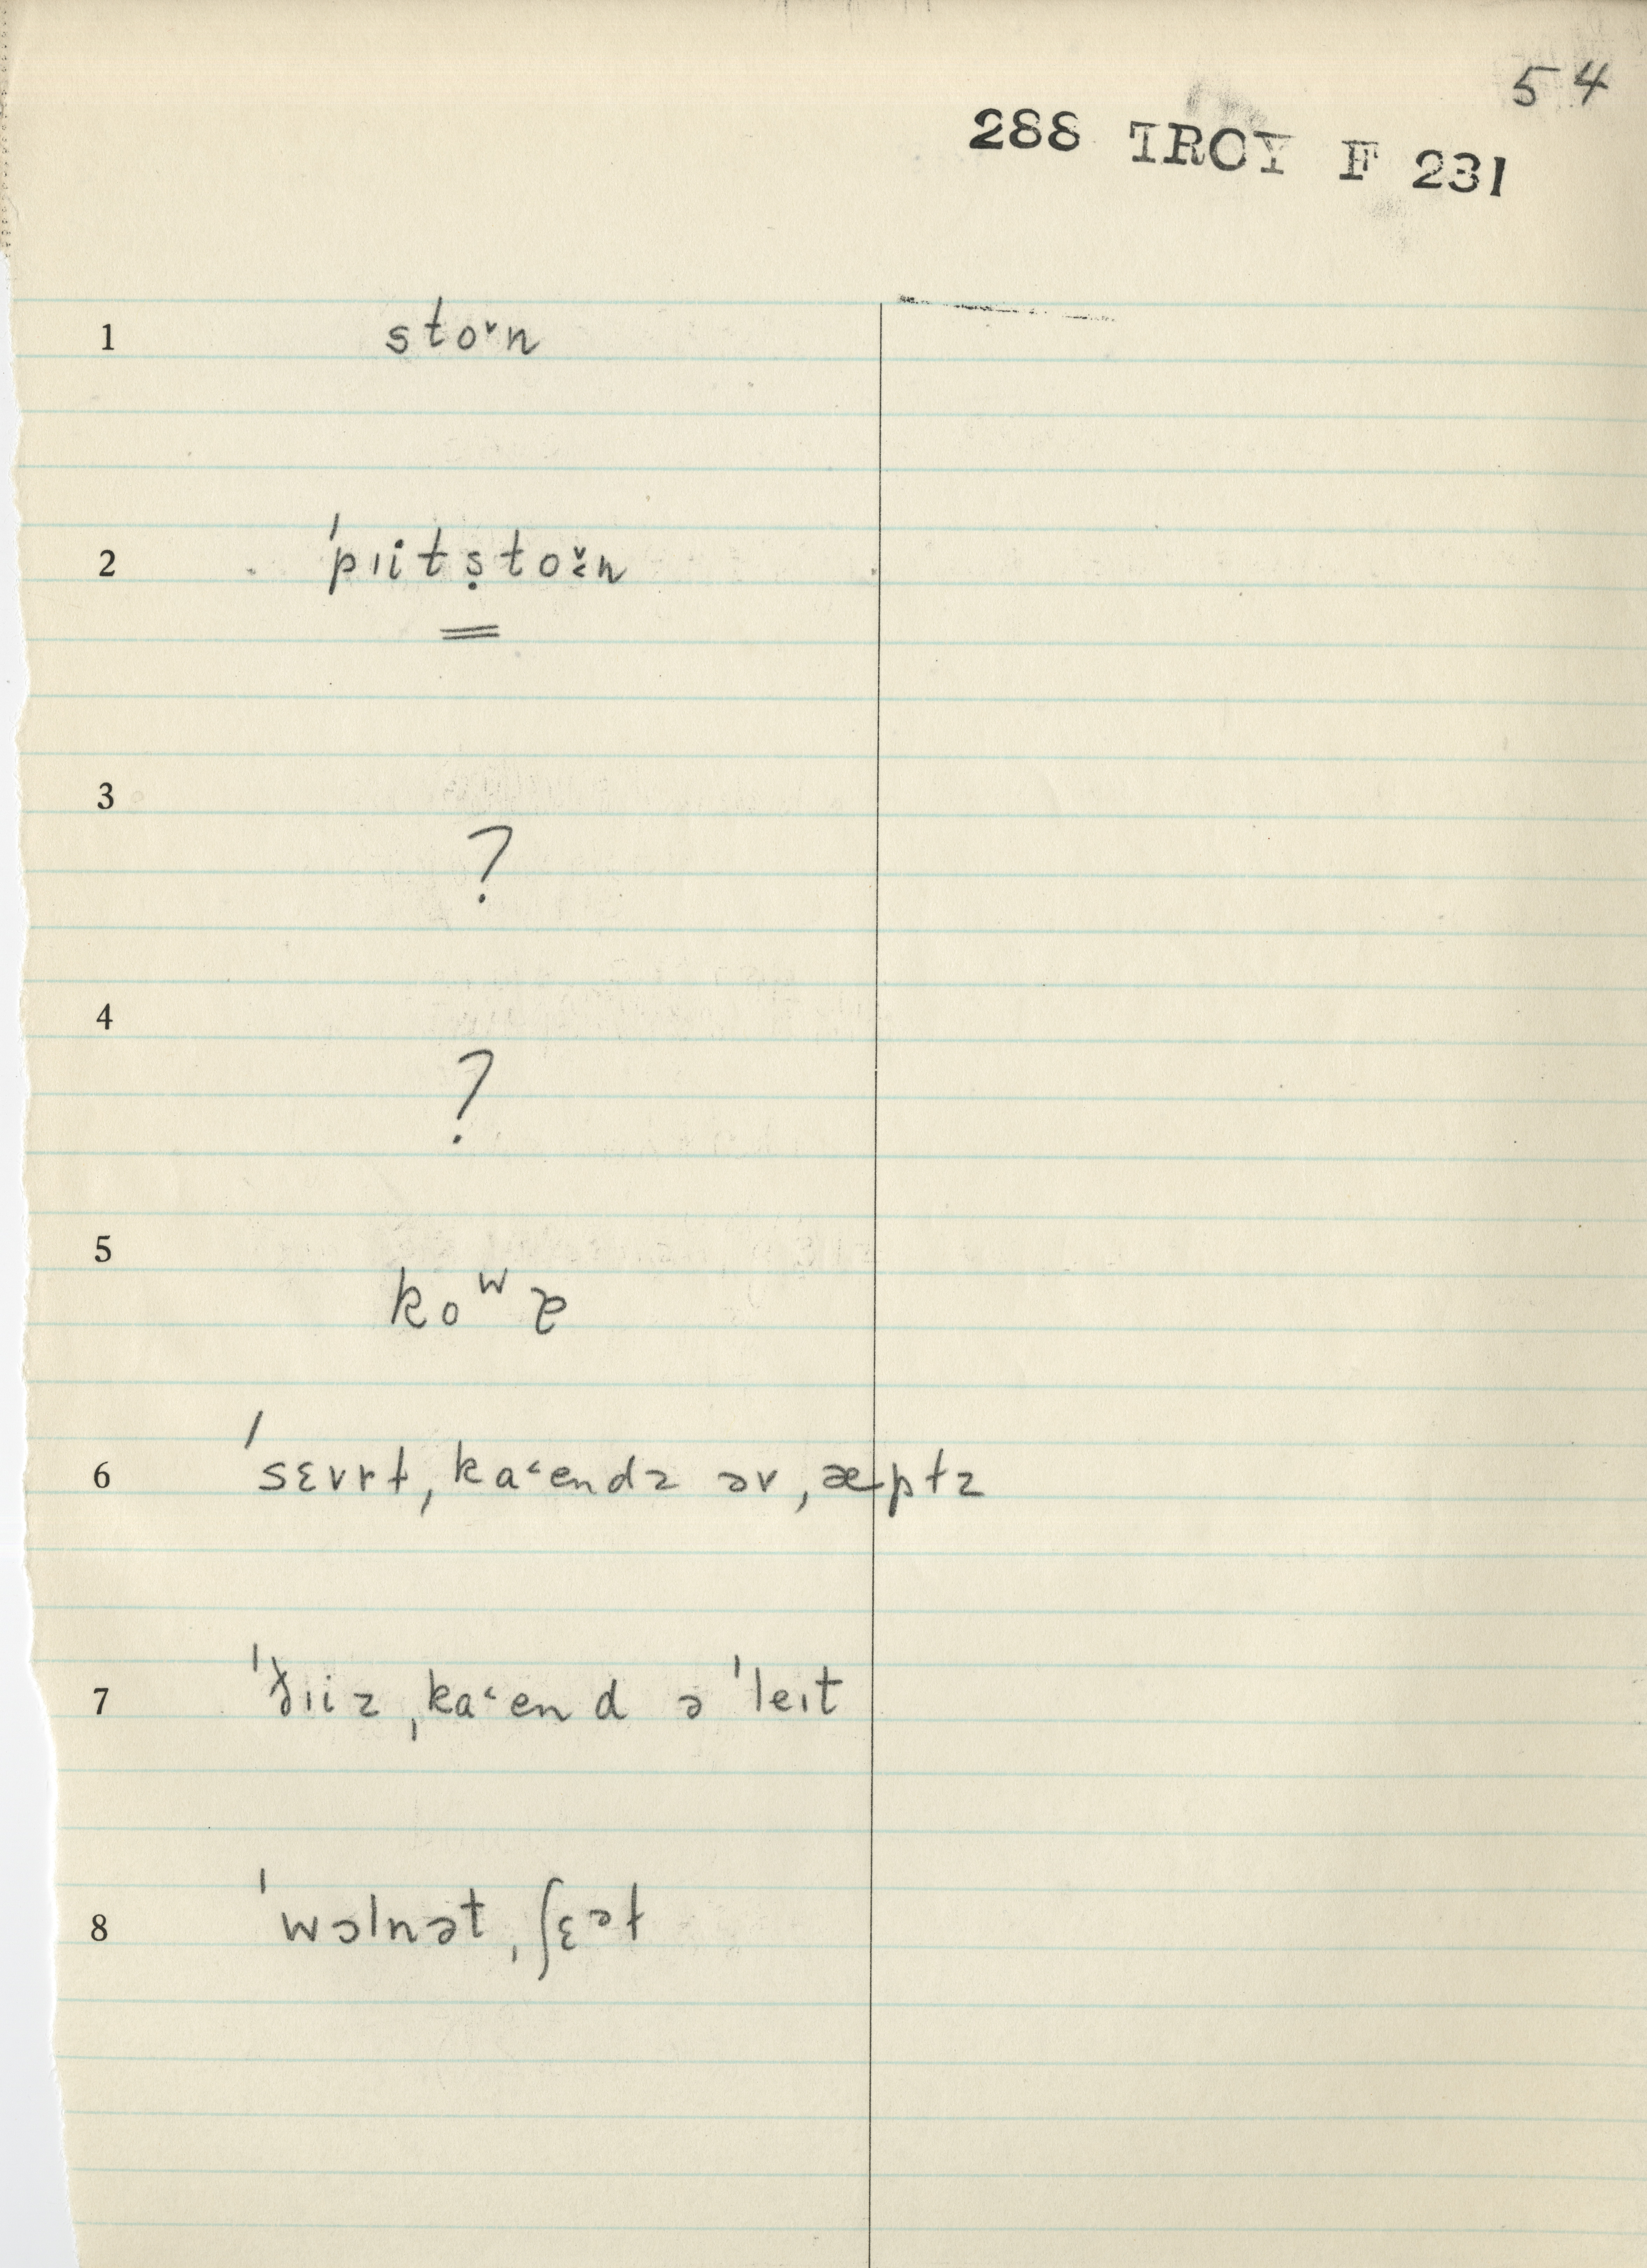 54
288 TROY F 231
1 stoˇn
2 ˈpıitṣtoˇ˂n
3
?
4
?
5
koʷz
6 ˈsɛvrt, ka˂endz əv ˌæptz
7 ˈðıiz ˌka˂end ə ˈleıt
8 ˈwɔlnət ˌʃɛət